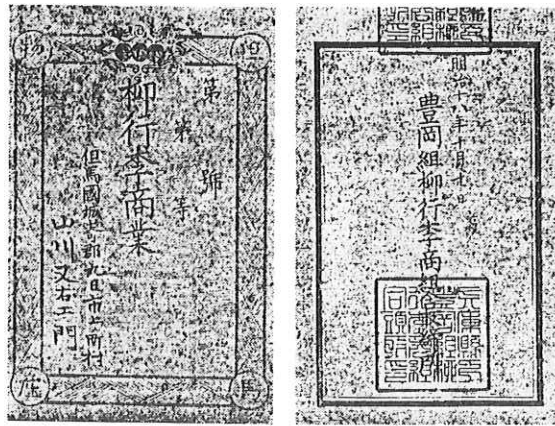 但馬産物
第 號
第 等
柳行李商業
但馬國城崎郡九日市上
山川又右エ門
明治十八年十月十日
豊岡組柳行李商組